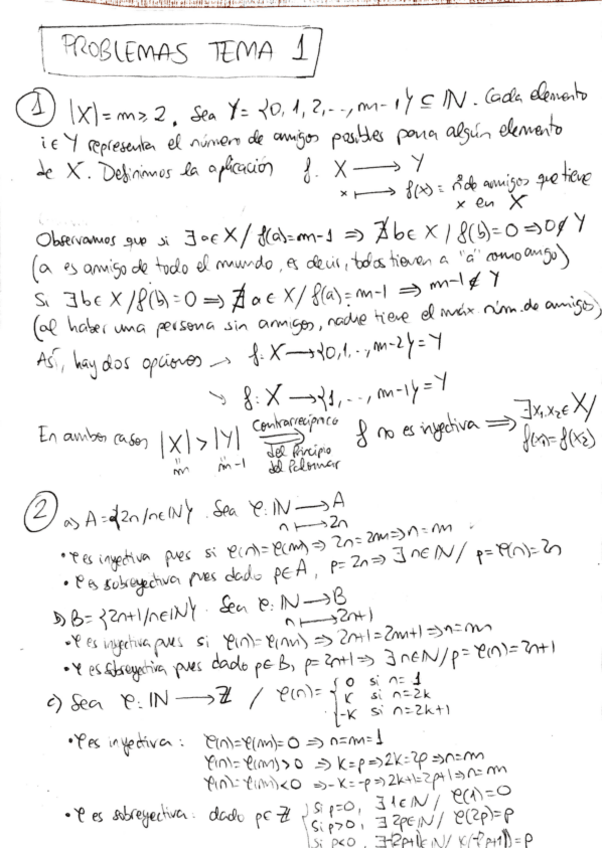 PROBLEMAS TEMA 1
① |X| = m ≥ 2. Sea Y = {0, 1, 2, ..., m-1} ⊆ ℕ. Cada elemento
i ∈ Y representa el número de amigos posibles para algún elemento
de X. Definimos la aplicación f: X ⟶ Y
x ⟼ f(x) = nº de amigos que tiene
x en X
Observamos que si ∃a ∈ X / f(a) = m-1 ⇒ ∄b ∈ X / f(b) = 0 ⇒ 0 ∉ Y
(a es amigo de todo el mundo, es decir, todos tienen a "a" como amigo)
Si ∃b ∈ X / f(b) = 0 ⇒ ∄a ∈ X / f(a) = m-1 ⇒ m-1 ∉ Y
(al haber una persona sin amigos, nadie tiene el máx. núm. de amigos)
Así, hay dos opciones → f: X ⟶ {0, 1, .., m-2} = Y
↘ f: X ⟶ {1, ..., m-1} = Y
En ambos casos |X| > |Y| ⟹ f no es inyectiva ⟹ ∃x₁, x₂ ∈ X /
f(x₁) = f(x₂)
m m-1
contrarrecíproco
del Principio
del Palomar
② a) A = {2n / n ∈ ℕ}. Sea φ: ℕ ⟶ A
n ⟼ 2n
• φ es inyectiva pues si φ(n) = φ(m) ⇒ 2n = 2m ⇒ n = m
• φ es sobreyectiva pues dado p ∈ A, p = 2n ⇒ ∃n ∈ ℕ / p = φ(n) = 2n
b) B = {2n+1 / n ∈ ℕ}. Sea φ: ℕ ⟶ B
n ⟼ 2n+1
• φ es inyectiva pues si φ(n) = φ(m) ⇒ 2n+1 = 2m+1 ⇒ n = m
• φ es sobreyectiva pues dado p ∈ B, p = 2n+1 ⇒ ∃n ∈ ℕ / p = φ(n) = 2n+1
c) Sea φ: ℕ ⟶ ℤ / φ(n) = { 0 si n = 1
k si n = 2k
-k si n = 2k+1
• φ es inyectiva: φ(n) = φ(m) = 0 ⇒ n = m = 1
φ(n) = φ(m) > 0 ⇒ k = p ⇒ 2k = 2p ⇒ n = m
φ(n) = φ(m) < 0 ⇒ -k = -p ⇒ 2k+1 = 2p+1 ⇒ n = m
• φ es sobreyectiva: dado p ∈ ℤ { si p = 0, ∃1 ∈ ℕ / φ(1) = 0
si p > 0, ∃2p ∈ ℕ / φ(2p) = p
si p < 0, ∃-2p+1 ∈ ℕ / φ(-2p+1) = p